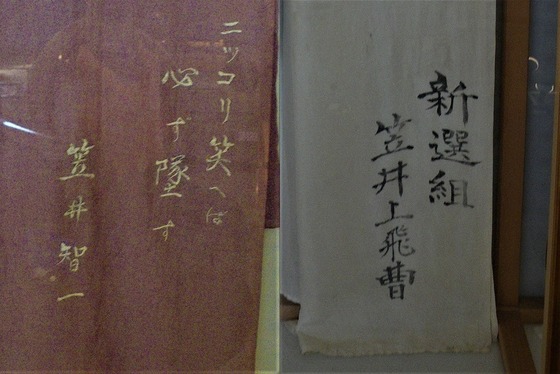 ニッコリ笑へば
必ず墜す
笠井智一
新選組
笠井上飛曹